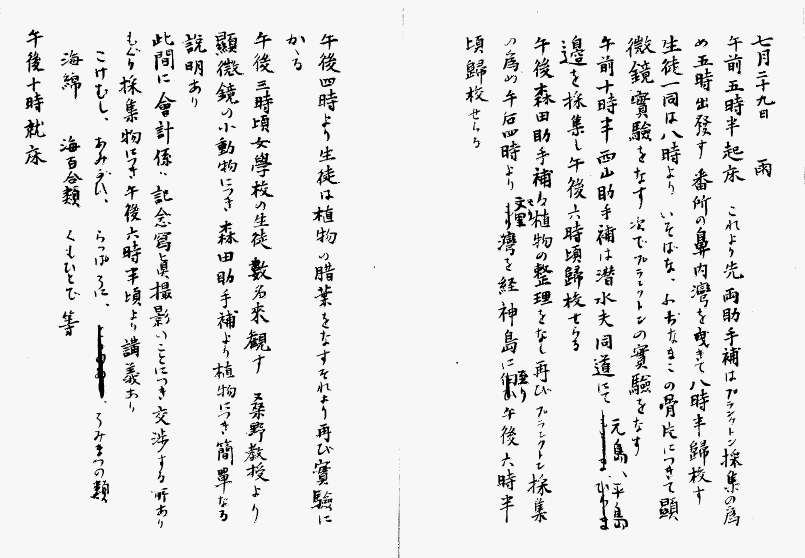 七月二十九日　雨
午前五時半起床　これより先両助手補はプランクトン採集の為
め五時出發す　番所の鼻内灣を曳きて八時半歸校す
生徒一同は八時より、いそばな、ふぢなまこの骨片につきて顯
微鏡實驗をなす　次でプランクトンの實驗をなす
午前十時半西山助手補は潜水夫同道にて元島、平島
邊を採集し午後六時頃歸校せらる
午後森田助手補は植物の整理をなし再びプランクトン採集
の為め午后四時より文里灣を経神島に至り午後六時半
頃歸校せらる
午後四時より生徒は植物の腊葉をなすそれより再び實驗に
かゝる
午後三時頃女學校の生徒數名來觀す　又桑野教授より
顯微鏡の小動物につき森田助手補より植物につき簡單なる
説明あり
此間に會計係は記念寫眞撮影のことにつき交渉する所あり
採集物につき午後六時半頃より講義あり
こけむし、あみがひ、らつぱうに、うみまつの類
海綿　海百合類　くもひとで等
午後十時就床